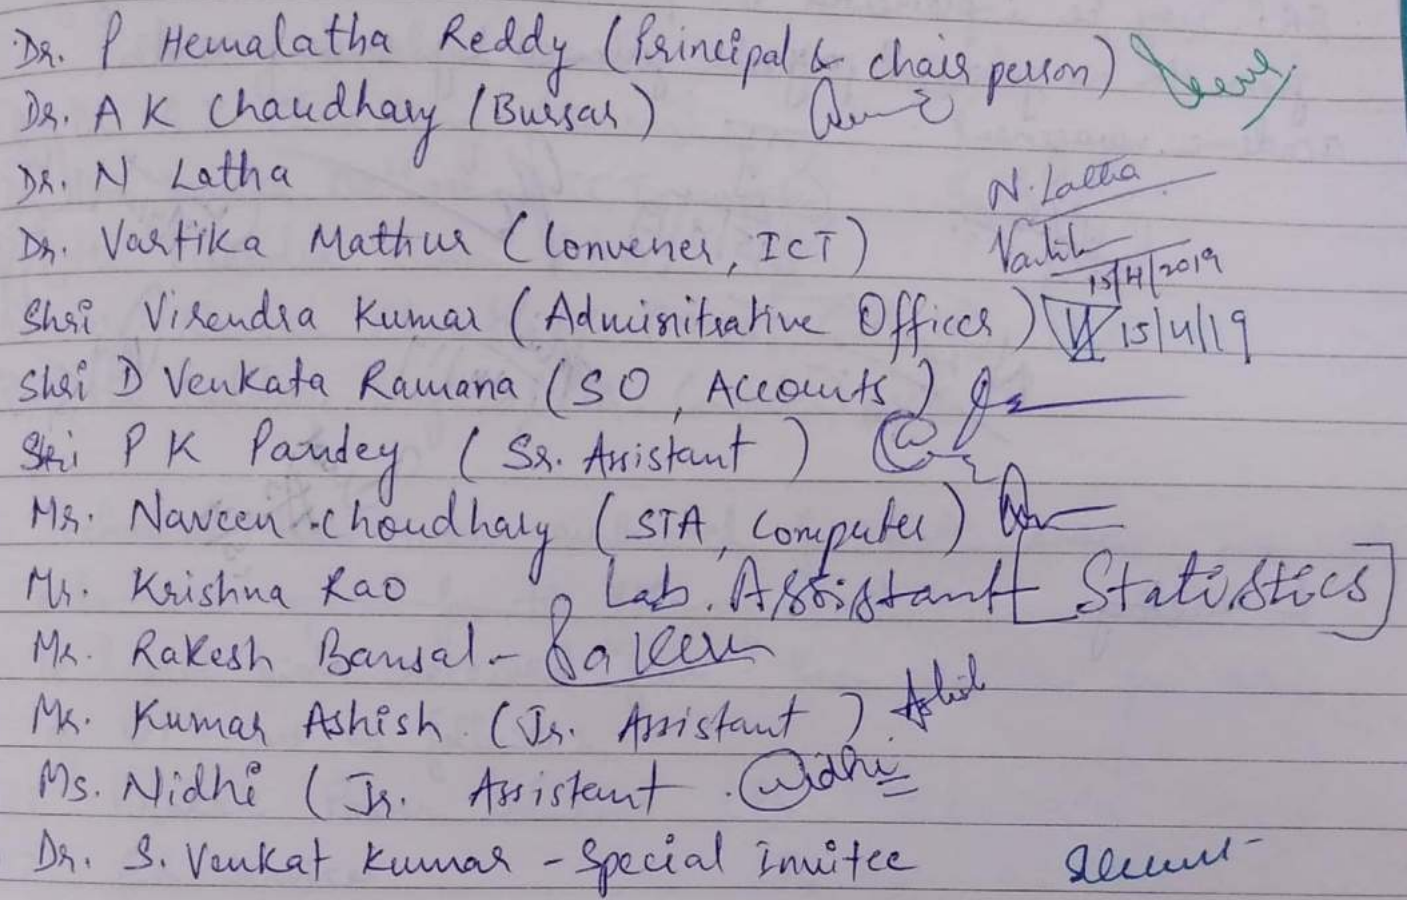 Dr. P Hemalatha Reddy (Principal & chair person)
Dr. A K Chaudhary (Bursar)
Dr. N Latha N. Latha
Dr. Vartika Mathur (Convener, ICT) 15/4/2019
Shri Virendra Kumar (Adminitrative Officer) 15/4/19
Shri D Venkata Ramana (SO, Accounts)
Shri P K Pandey (Sr. Assistant)
Mr. Naveen Choudhary (STA, Computer)
Mr. Krishna Rao Lab. Assistant [Statistics]
Mr. Rakesh Bansal - Rakesh
Mr. Kumar Ashish (Jr. Assistant) Ashish
Ms. Nidhi (Jr. Assistant Nidhi
Dr. S. Venkat Kumar - Special Invitee